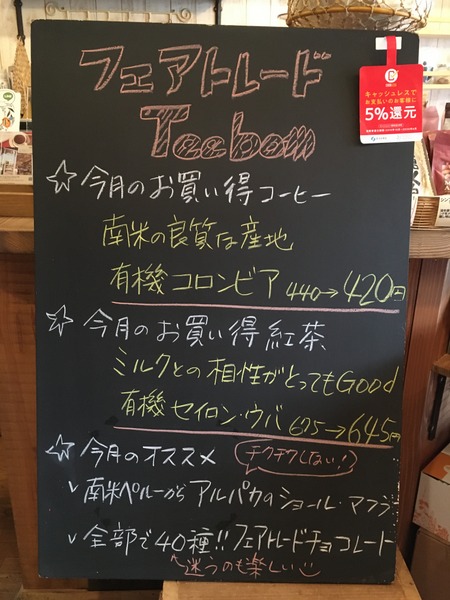 フェアトレード
Teebom
キャッシュレスで
お支払いのお客様に
5%還元
☆今月のお買い得コーヒー
南米の良質な産地
有機コロンビア 440→420円
☆今月のお買い得紅茶
ミルクとの相性がとってもGood
有機セイロン・ウバ 675→645円
☆今月のオススメ
チクチクしない!
✓南米ペルーからアルパカのショール・マフラー
✓全部で40種!!フェアトレードチョコレート
迷うのも楽しい